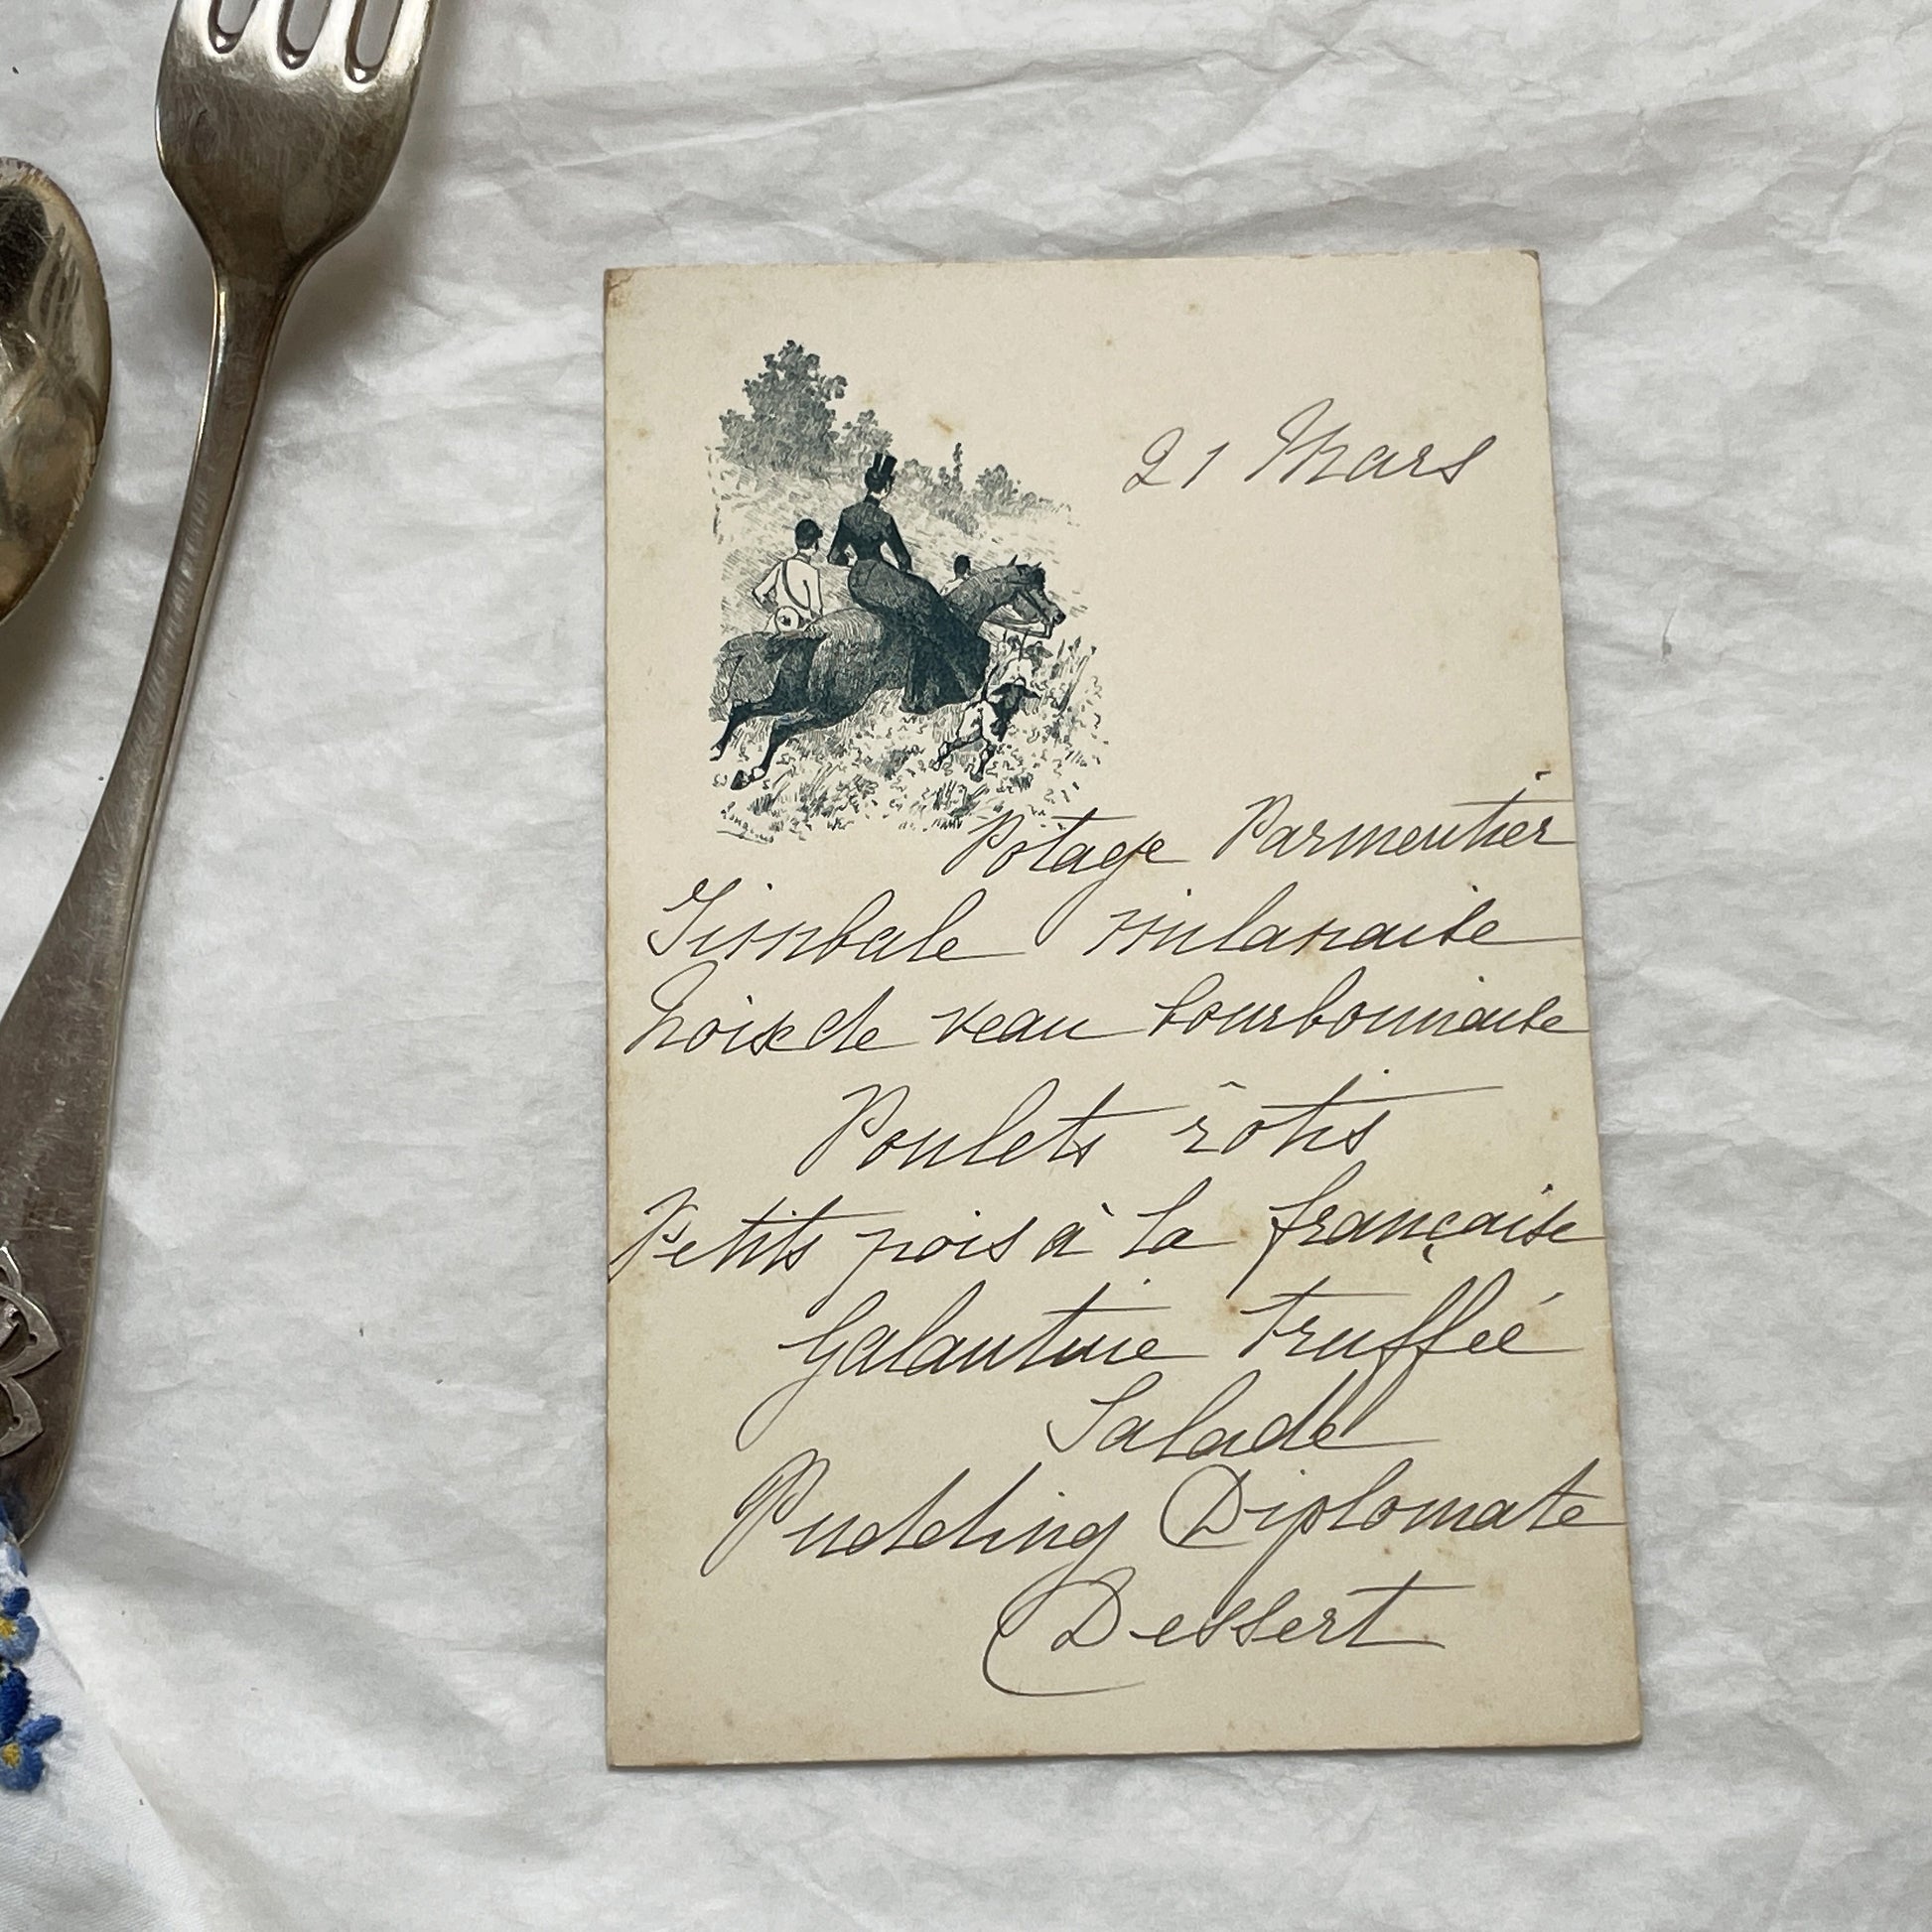 21 Mars
Potage Parmentier
Timbale milanaise
Noix de veau bourbonnaise
Poulets rôtis
Petits pois à la française
Galantine truffée
Salade
Pudding Diplomate
Dessert